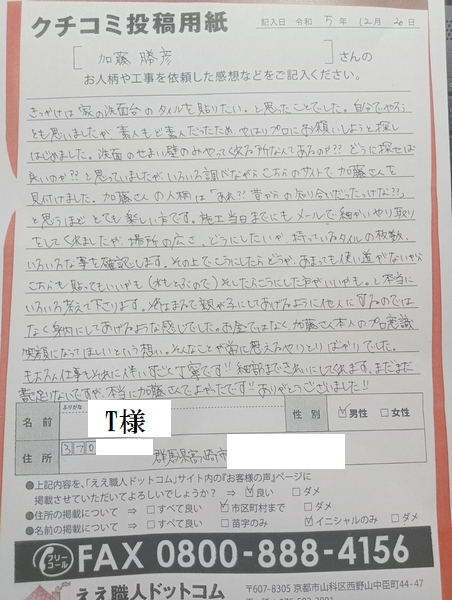 クチコミ投稿用紙
記入日 令和 5 年 12 月 20 日
[ 加藤 勝彦 ] さんの
お人柄や工事を依頼した感想などをご記入ください。
きっかけは家の洗面台のタイルを貼りたい。と思ったことでした。自分でやろう
とも思いましたが素人もど素人だったため、やはりプロにお願いしようと探し
はじめました。洗面のせまい壁のみやってくれる所なんてあるのか?? どうに探せば
良いのか?? と思っていましたがいろいろ調べながらこちらのサイトで加藤さんを
見付けました。加藤さんの人柄は「あれ?? 昔からの知り合いだったっけな??」
と思うほどとても楽しい方です。施工当日までにもメールで細かいやり取り
をしてくれましたが場所の広さ、どうにしたいか、持っているタイルの枚数、
いろいろな事を確認でします。その上でこうにしたらどうか、あまっても使い道がないから
こちらも貼ってもいいかも(水もとぶので)そしたらこうにした方がいいかも。と本当に
いろいろ考えて下さります。 まるで親が子にしてあげるように他人にするのでは
なく身内にしてあげるような感じでした。お金ではなく、加藤さん本人のプロ意識
笑顔になってほしいという想い。そんなことが常に思えるやりとりばかりでした。
もちろん仕事もそれに伴いすごく丁寧です!! 細部まできれいにしてくれます。まだまだ
書き足りないですが、本当に加藤さんでよかったです!! ありがとうございました!!
ふりがな
名前 T様 性別 ☑男性 □女性
住所 370 群馬県高崎市
●上記内容を、「ええ職人ドットコム」サイト内の『お客様の声』ページに
掲載させていただいてよろしいでしょうか? ⇒ ☑良い □ダメ
●住所の掲載について ⇒ □すべて良い ☑市区町村まで □ダメ
●名前の掲載について ⇒ □すべて良い □苗字のみ ☑イニシャルのみ □ダメ
フリーコール FAX 0800-888-4156
ええ職人ドットコム
〒607-8305 京都市山科区西野山中臣町44-47